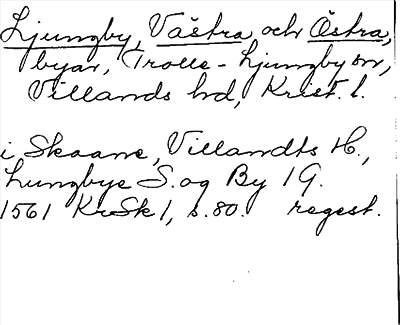 Ljungby, Västra och Östra,
byar, Trolle-Ljungby sn,
Villands hd, Krist. l.
i Skaane, Villandts H.,
Liungbye S. og By 1 G.
1561 KrSk 1, s. 80. regest.